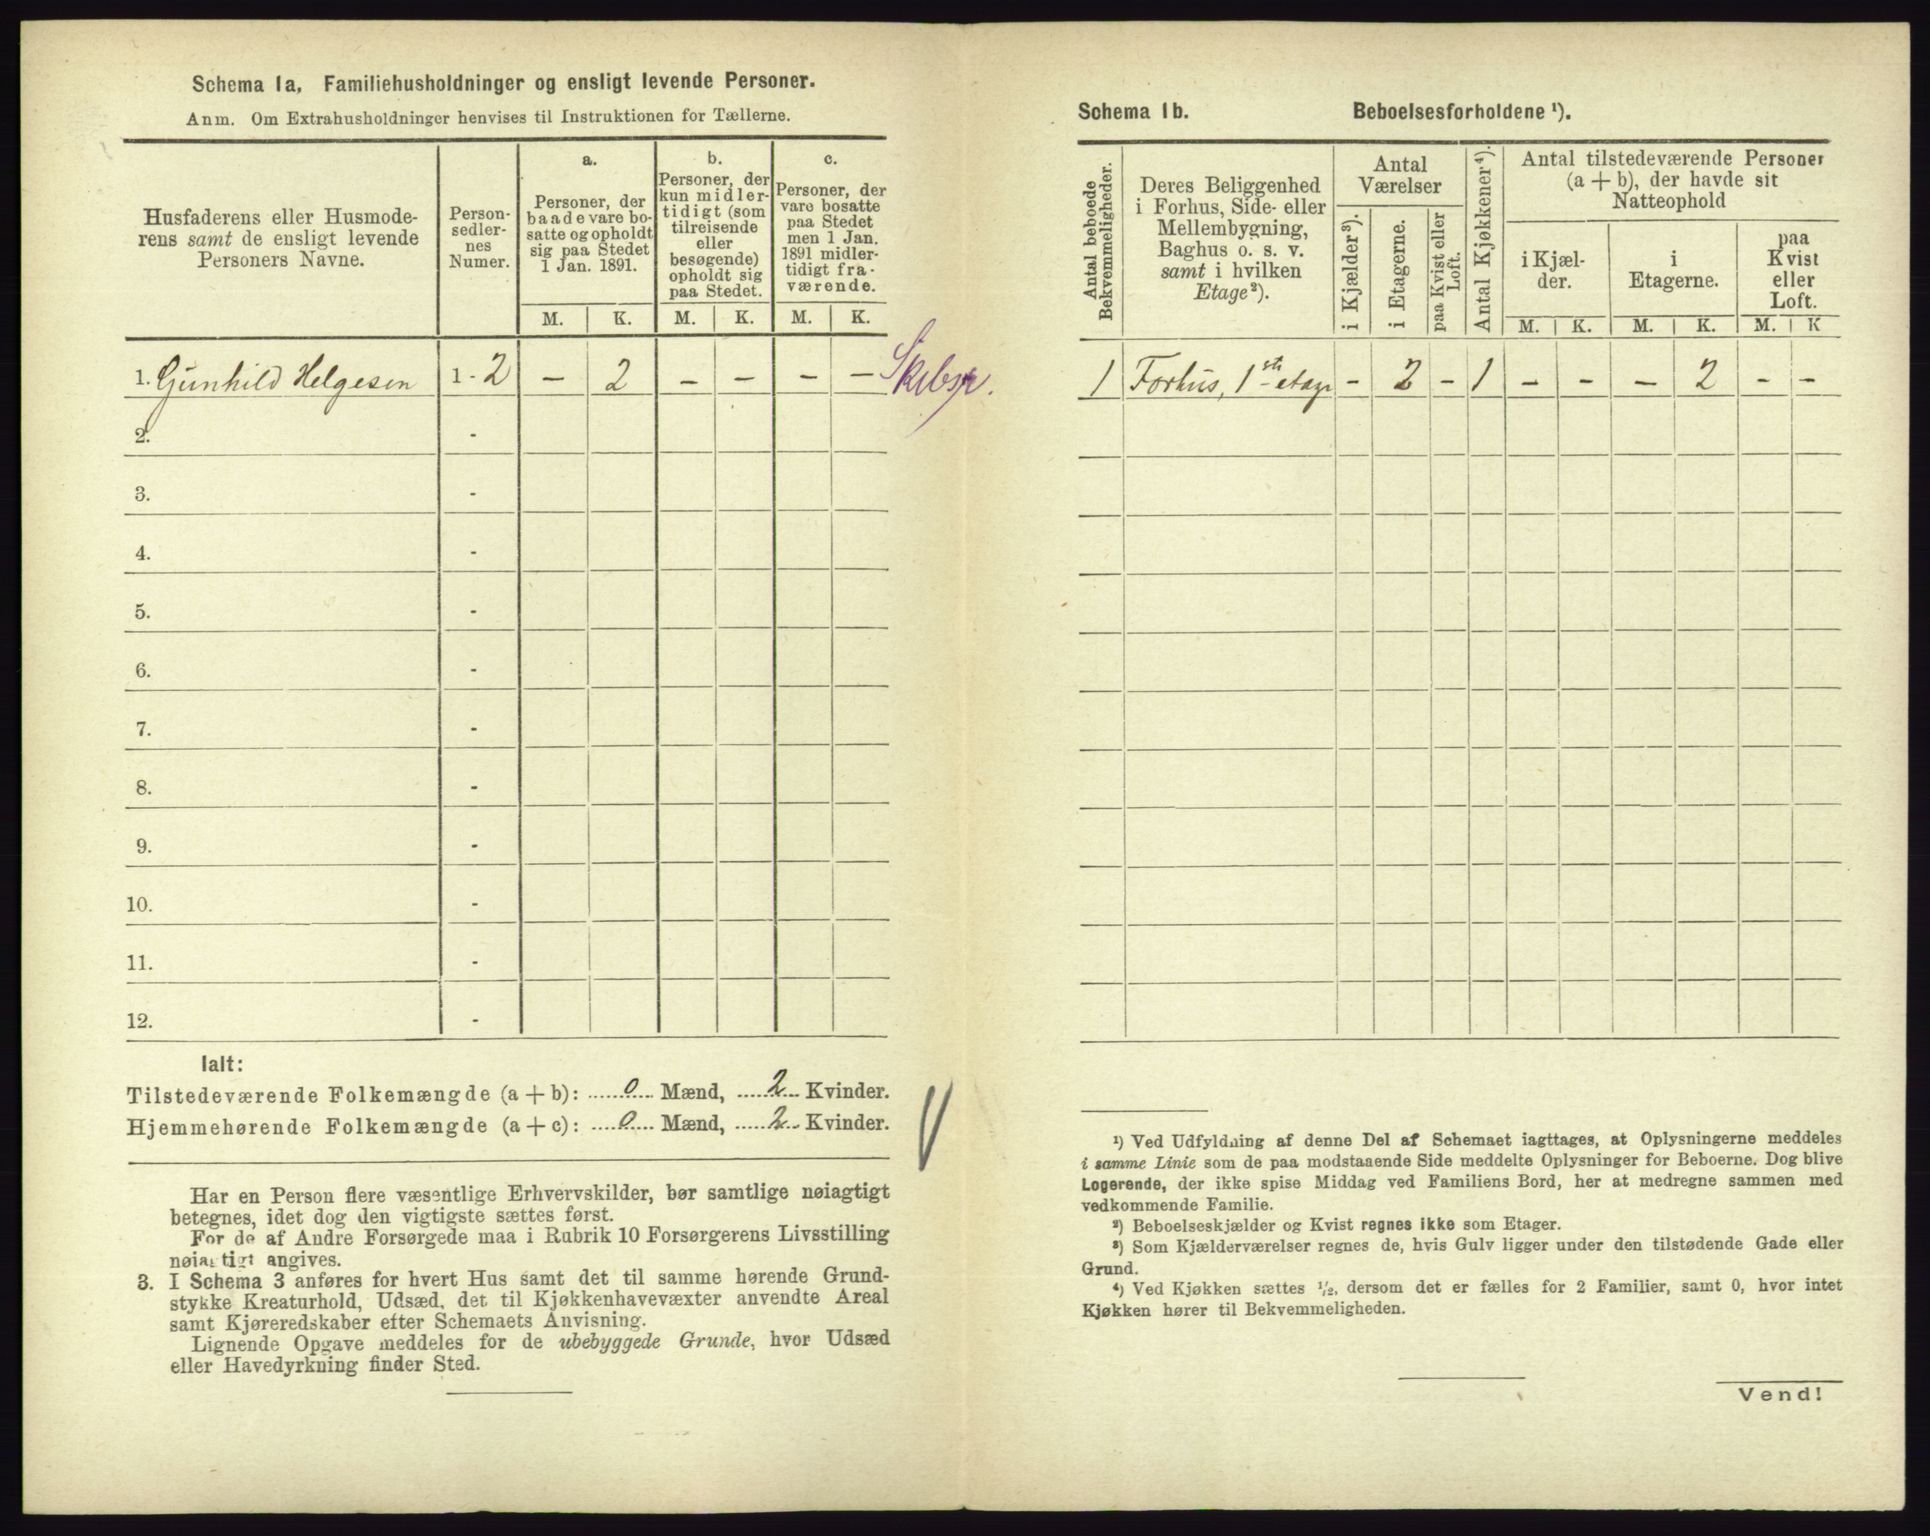 Schema 1a, Familiehusholdninger og ensligt levende Personer.
Anm. Om Extrahusholdninger henvises til Instruktionen for Tællerne.
Husfaderens eller Husmode-
rens samt de ensligt levende
Personers Navne.
Person-
sedler-
nes
Numer.
a.
Personer, der
baade vare bo-
satte og opholdt
sig paa Stedet
1 Jan. 1891.
b.
Personer, der
kun midler-
tidigt (som
tilreisende
eller
besøgende)
opholdt sig
paa Stedet.
c.
Personer, der
vare bosatte
paa Stedet
men 1 Jan.
1891 midler-
tidigt fra-
værende.
M. K. M. K. M. K.
1. Gunhild Helgesen 1 - 2 — 2 — — — —
2. -
3. -
4. -
5. -
6. -
7. -
8. -
9. -
10. -
11. -
12. -
Ialt:
Tilstedeværende Folkemængde (a + b): 0 Mænd, 2 Kvinder.
Hjemmehørende Folkemængde (a + c): 0 Mænd, 2 Kvinder.
Har en Person flere væsentlige Erhvervskilder, bør samtlige nøiagtigt
betegnes, idet dog den vigtigste sættes først.
For de af Andre Forsørgede maa i Rubrik 10 Forsørgerens Livsstilling
nøiagtigt angives.
3. I Schema 3 anføres for hvert Hus samt det til samme hørende Grund-
stykke Kreaturhold, Udsæd, det til Kjøkkenhavevæxter anvendte Areal
samt Kjøreredskaber efter Schemaets Anvisning.
Lignende Opgave meddeles for de ubebyggede Grunde, hvor Udsæd
eller Havedyrkning finder Sted.
Schema 1b. Beboelsesforholdene ¹).
Antal beboede
Bekvemmeligheder.
Deres Beliggenhed
i Forhus, Side- eller
Mellembygning,
Baghus o. s. v.
samt i hvilken
Etage²).
Antal
Værelser
i Kjælder³).
i Etagerne.
paa Kvist eller
Loft.
Antal Kjøkkener⁴).
Antal tilstedeværende Personer
(a + b), der havde sit
Natteophold
i Kjæl-
der.
i
Etagerne.
paa
Kvist
eller
Loft.
M. K. M. K. M. K
1 Forhus, 1ste etage — 2 — 1 — — — 2 — —
¹) Ved Udfyldning af denne Del af Schemaet iagttages, at Oplysningerne meddeles
i samme Linie som de paa modstaaende Side meddelte Oplysninger for Beboerne. Dog blive
Logerende, der ikke spise Middag ved Familiens Bord, her at medregne sammen med
vedkommende Familie.
²) Beboelseskjælder og Kvist regnes ikke som Etager.
³) Som Kjælderværelser regnes de, hvis Gulv ligger under den tilstødende Gade eller
Grund.
⁴) Ved Kjøkken sættes ½, dersom det er fælles for 2 Familier, samt 0, hvor intet
Kjøkken hører til Bekvemmeligheden.
Vend!